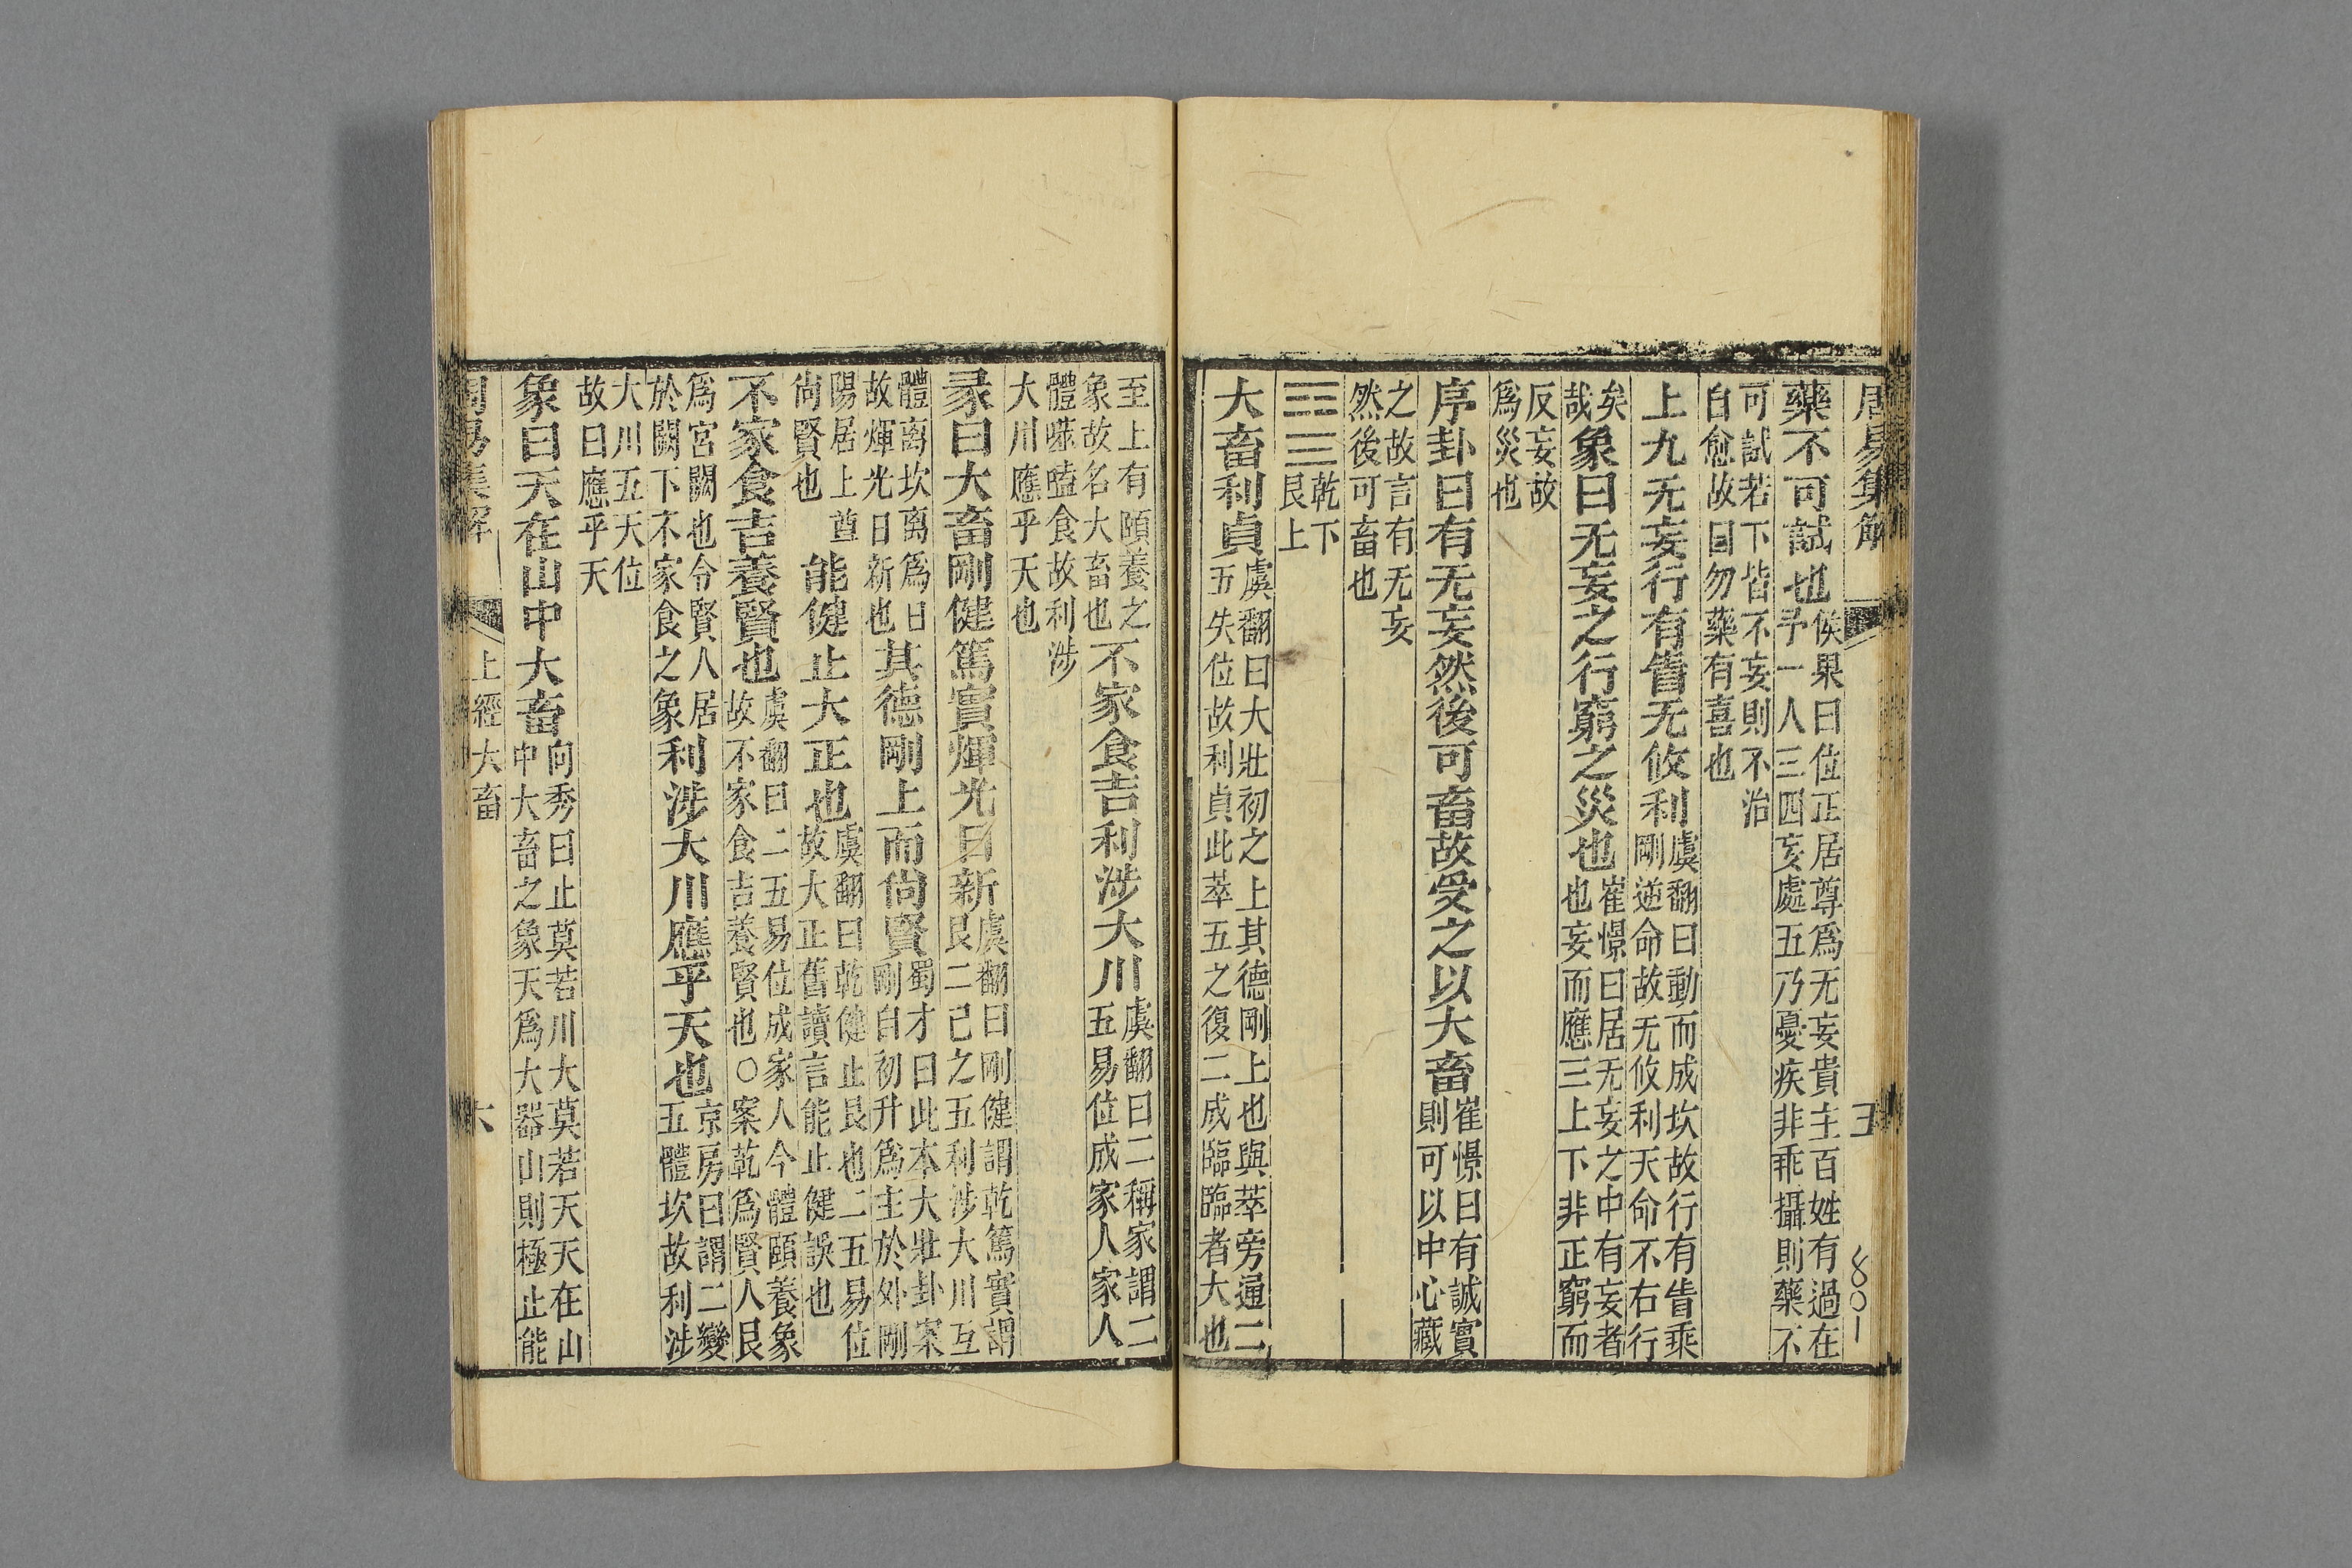 周易集解
五
8〇1
藥不可試也侯果曰位正居尊爲无妄貴主百姓有過在予一人三四妄處五乃憂疾非乖攝則藥不
可試若下皆不妄則不治自愈故曰勿藥有喜也
上九无妄行有眚无攸利虞翻曰動而成坎故行有眚乘剛逆命故无攸利天命不右行
矣哉象曰无妄之行窮之災也崔憬曰居无妄之中有妄者也妄而應三上下非正窮而
反妄故爲災也
序卦曰有无妄然後可畜故受之以大畜崔憬曰有誠實則可以中心藏
之故言有无妄然後可畜也
乾下艮上
大畜利貞虞翻曰大壯初之上其德剛上也與萃旁通二五失位故利貞此萃五之復二成臨臨者大也
至上有頤養之象故名大畜也不家食吉利涉大川虞翻曰二稱家謂二五易位成家人家人
體噬嗑食故利涉大川應乎天也
彖曰大畜剛健篤實煇光日新虞翻曰剛健謂乾篤實謂艮二已之五利涉大川互
體离坎离爲日故煇光日新也其德剛上而尚賢蜀才曰此本大壯卦案剛自初升爲主於外剛
陽居上尊尚賢也能健止大正也虞翻曰乾健止艮也二五易位故大正舊讀言能止健誤也
不家食吉養賢也虞翻曰二五易位成家人今體頤養象故不家食吉養賢也〇案乾爲賢人艮
爲宮闕也令賢人居於闕下不家食之象利涉大川應乎天也京房曰謂二變五體坎故利涉
大川五天位故曰應乎天
象曰天在山中大畜向秀曰止莫若川大莫若天天在山中大畜之象天爲大器山則極止能
周易集解
上經大畜
六